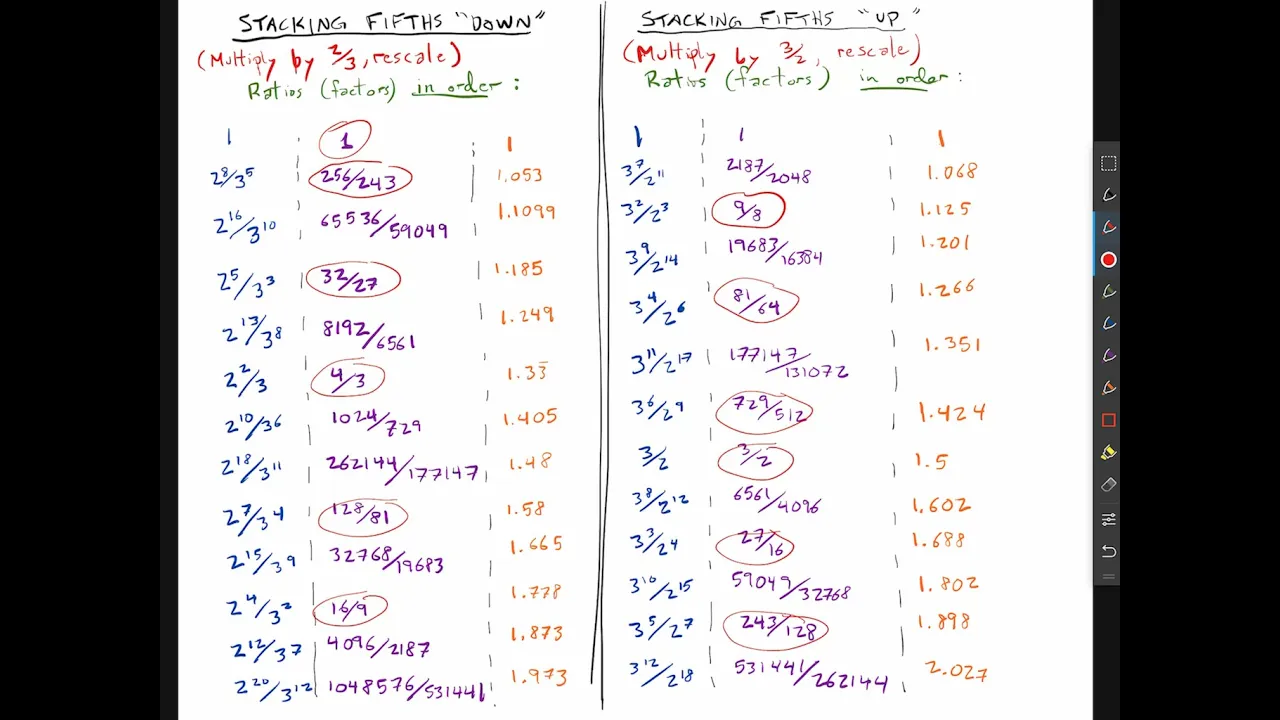 STACKING FIFTHS "DOWN"
(Multiply by 2/3, rescale)
Ratios (factors) in order:
1 1 1
2^8/3^5 256/243 1.053
2^16/3^10 65536/59049 1.1099
2^5/3^3 32/27 1.185
2^13/3^8 8192/6561 1.249
2^2/3 4/3 1.33̅
2^10/3^6 1024/729 1.405
2^18/3^11 262144/177147 1.48
2^7/3^4 128/81 1.58
2^15/3^9 32768/19683 1.665
2^4/3^2 16/9 1.778
2^12/3^7 4096/2187 1.873
2^20/3^12 1048576/531441 1.973
STACKING FIFTHS "UP"
(Multiply by 3/2, rescale)
Ratios (factors) in order:
1 1 1
3^7/2^11 2187/2048 1.068
3^2/2^3 9/8 1.125
3^9/2^14 19683/16384 1.201
3^4/2^6 81/64 1.266
3^11/2^17 177147/131072 1.351
3^6/2^9 729/512 1.424
3/2 3/2 1.5
3^8/2^12 6561/4096 1.602
3^3/2^4 27/16 1.688
3^10/2^15 59049/32768 1.802
3^5/2^7 243/128 1.898
3^12/2^18 531441/262144 2.027